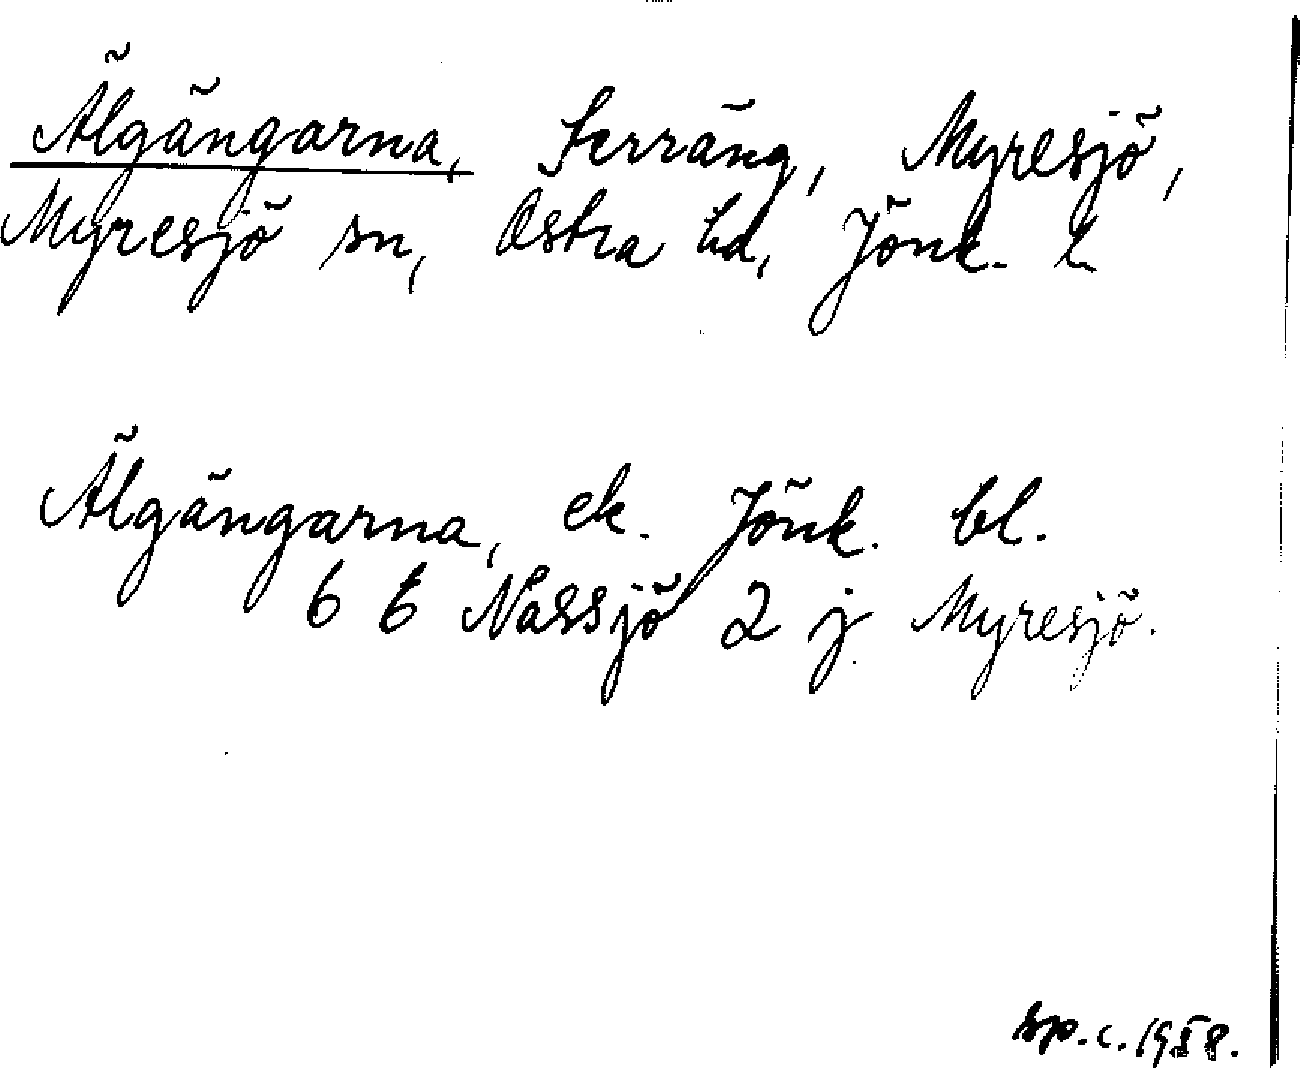 Älgängarna, Terräng, Myresjö,
Myresjö sn, Östra hd, Jönk. l.
Älgängarna, ek. Jönk. bl.
6 E Nässjö 2 j Myresjö.
sp.c. 1958.